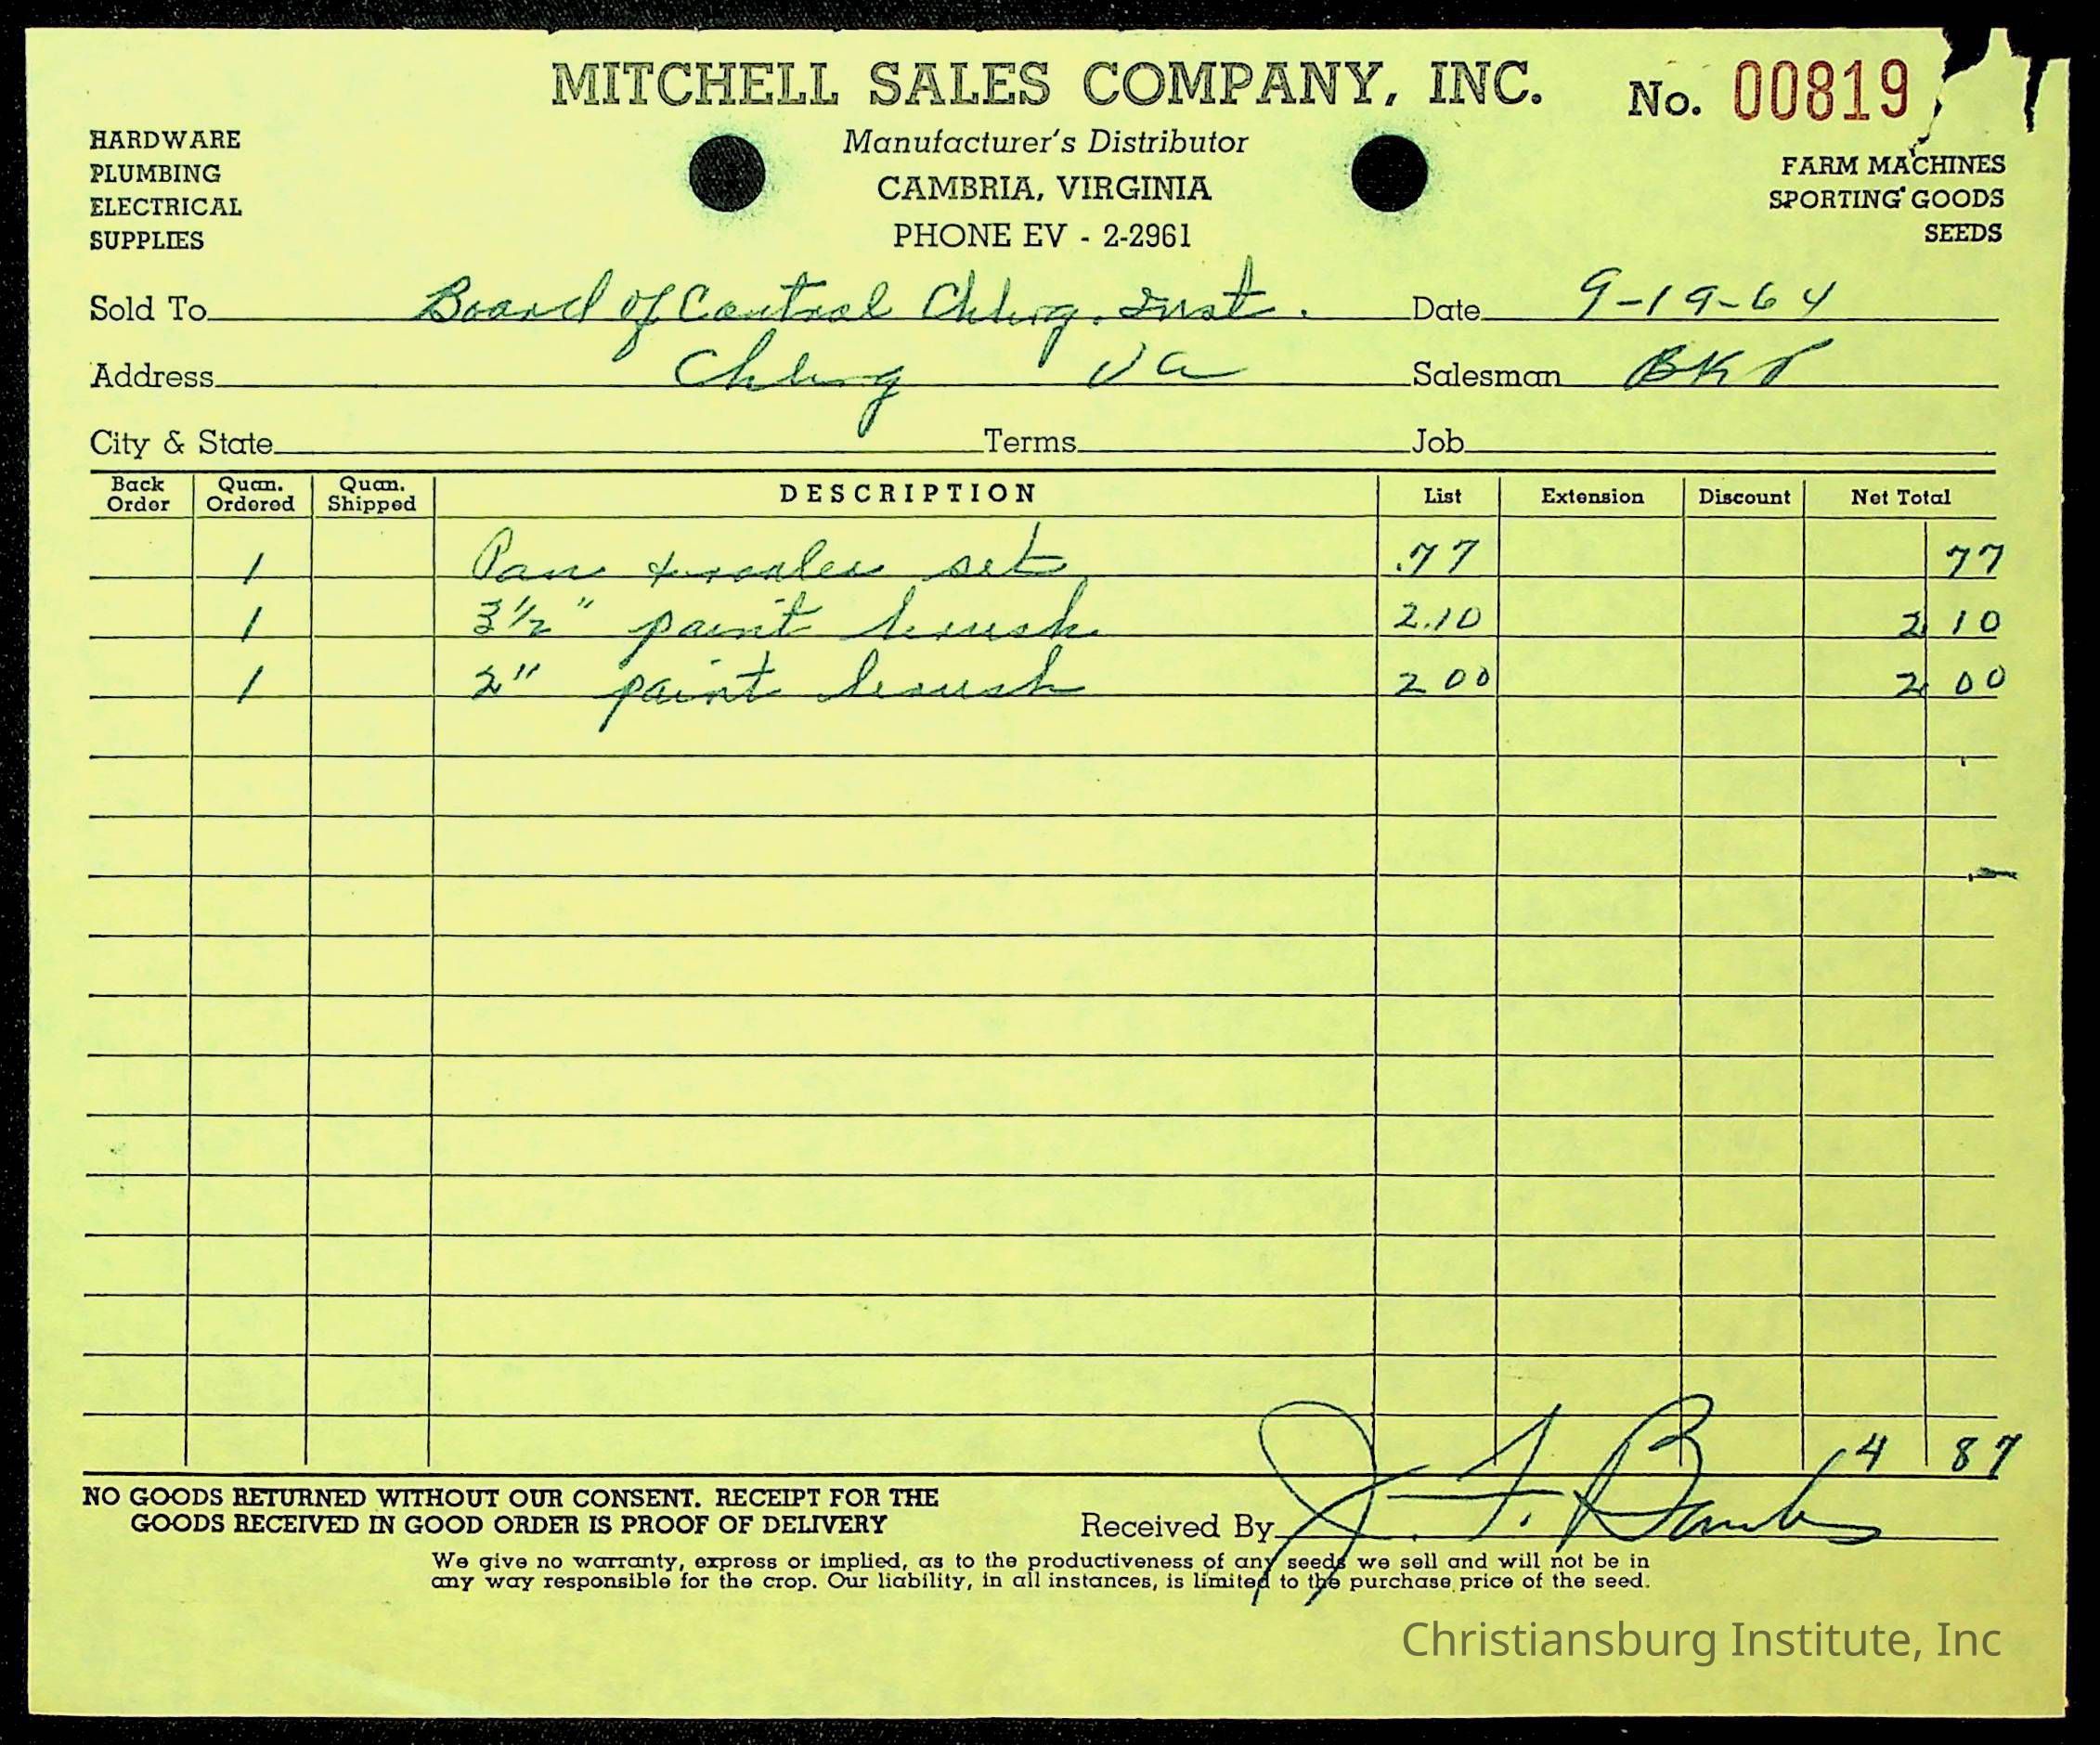 MITCHELL SALES COMPANY, INC.
No. 00819
HARDWARE
PLUMBING
ELECTRICAL
SUPPLIES
Manufacturer's Distributor
CAMBRIA, VIRGINIA
PHONE EV - 2-2961
FARM MACHINES
SPORTING GOODS
SEEDS
Sold To Board of Control Chbrg. Inst. Date 9-19-64
Address Chbrg Va Salesman
City & State Terms Job
Back Order Quan. Ordered Quan. Shipped DESCRIPTION List Extension Discount Net Total
1 Pan & set .77 77
1 3 1/2" paint brush 2.10 2 10
1 2" paint brush 2 00 2 00
4 87
NO GOODS RETURNED WITHOUT OUR CONSENT. RECEIPT FOR THE
GOODS RECEIVED IN GOOD ORDER IS PROOF OF DELIVERY
Received By J. F. Banks
We give no warranty, express or implied, as to the productiveness of any seeds we sell and will not be in
any way responsible for the crop. Our liability, in all instances, is limited to the purchase price of the seed.
Christiansburg Institute, Inc